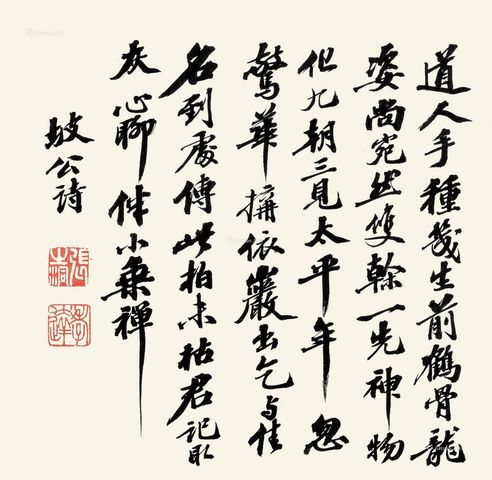 道人手種幾生前鶴骨龍
姿尚宛然雙榦一先神物
化九朝三見太平年忽
驚華搆依巖出乞与佳
名到處傳此柏未枯君記取
灰心聊伴小乘禪
坡公詩